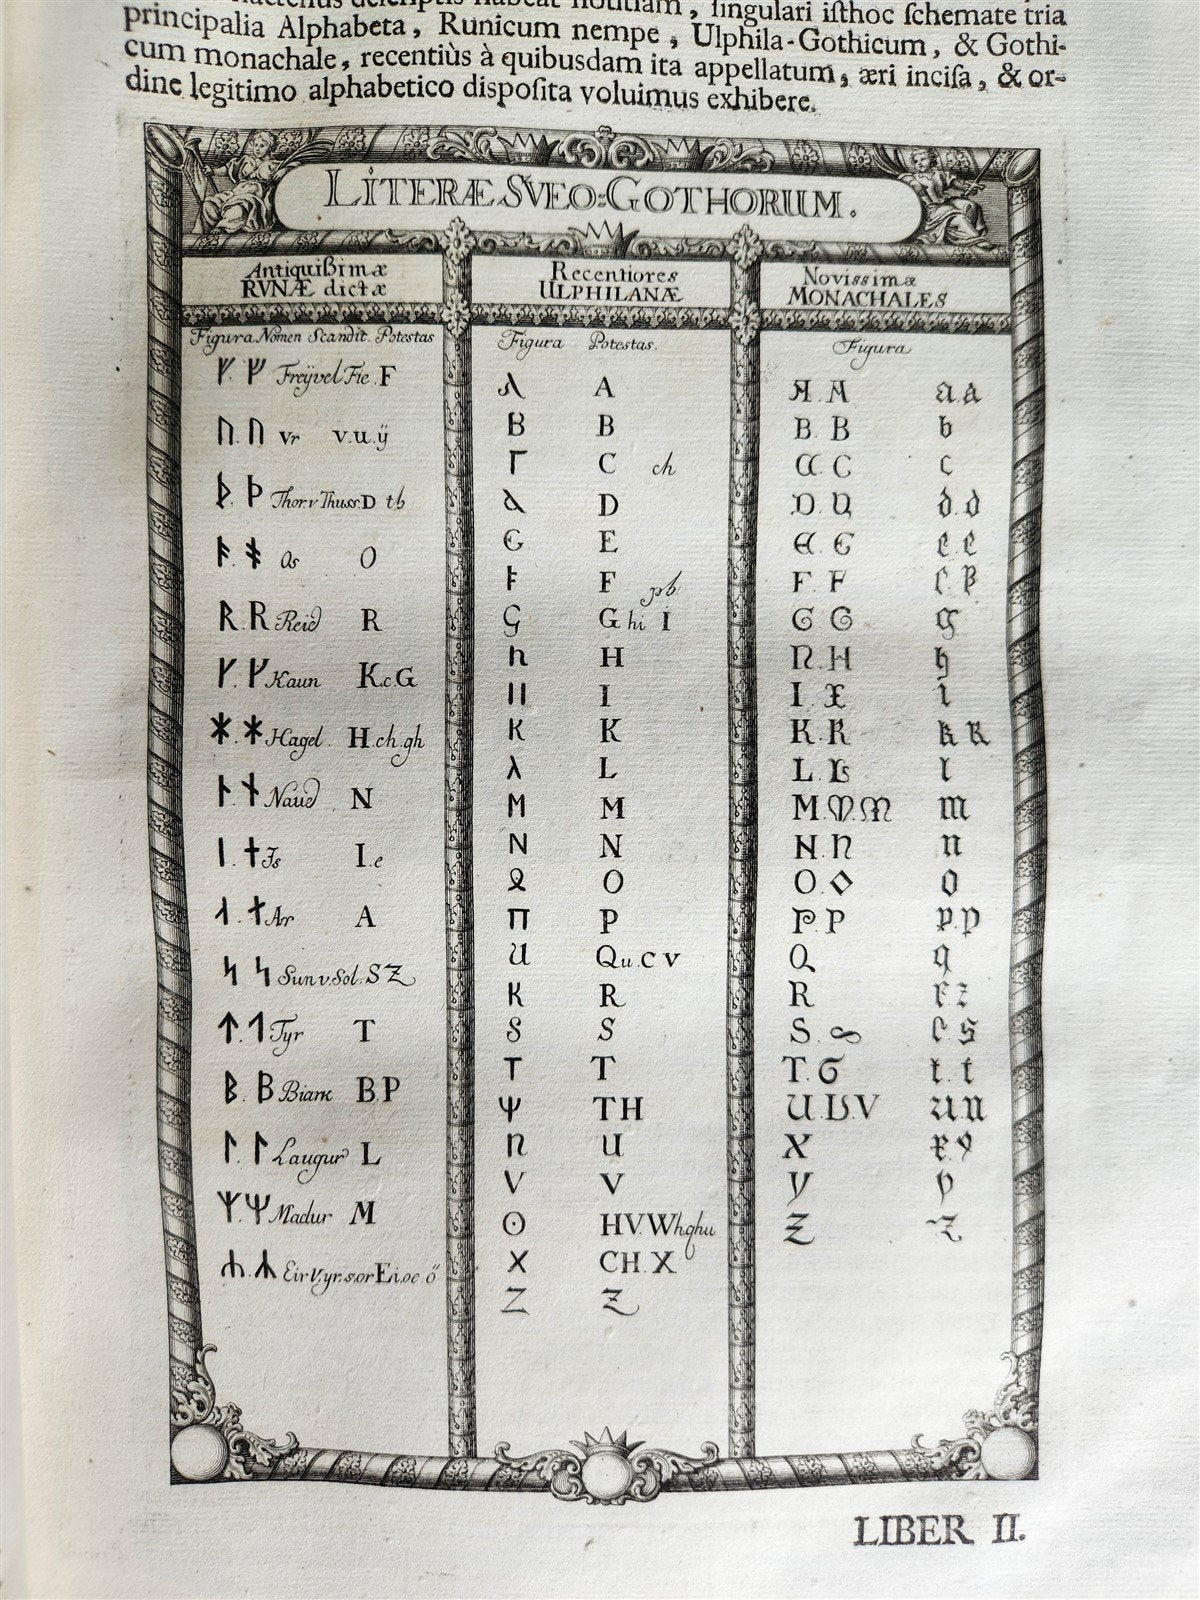 habeat notitiam, singulari isthoc schemate tria
principalia Alphabeta, Runicum nempe, Ulphila-Gothicum, & Gothi-
cum monachale, recentiùs à quibusdam ita appellatum, æri incisa, & or-
dine legitimo alphabetico disposita voluimus exhibere.
LITERÆ SVEO=GOTHORUM.
Antiquißimæ
RVNÆ dictæ
Figura Nomen Scandit. Potestas
ᚠ. ᚠ Freÿvel Fie. F
ᚢ. ᚢ Vr v.u.ÿ
ᚦ. ᚦ Thor.v Thuss. D th
ᚨ. ᚯ Os O
ᚱ. ᚱ Reid R
ᚴ. ᚴ Kaun K.c.G
ᚼ. ᚼ Hagel. H.ch.gh
ᚿ ᚾ Naud N
ᛁ. ᛏ Is I.e
ᛆ. ᛅ Ar A
ᛋ ᛋ Sun v. Sol. S Z
ᛏ. ᛐ Tyr T
ᛒ. ᛒ Biark B.P
ᛚ. ᛚ Laugur L
ᛘ. ᛘ Madur M
ᛦ. ᛦ Eir v. yr.
Recentiores
ULPHILANÆ
Figura Potestas.
λ A
B B
Γ C ch
δ D
Є E
F F ph
G G hi I
h H
II I
K K
λ L
M M
N N
Ω O
Π P
U Qu.C v
R R
S S
T T
Ψ TH
n U
V V
ʘ HV.W hqhu
X CH.X
Z Z
Novissimæ
MONACHALES
Figura
A. A a.a
B. B b
C C c
D. D d.d
E. E e.e
F. F f.
G G g
H. H h
I. I i
K. K k K
L. L l
M. M. M m
N. N n
O. O o
P. P p.p
Q q
R r z
S. S s s
T. T t. t
U. U. V u u
X x.
Y y
Z z
LIBER II.